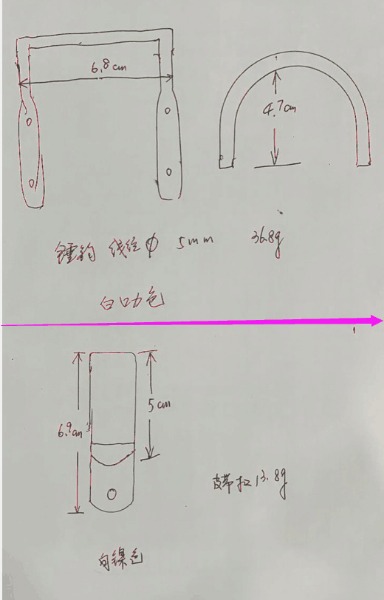 6.8cm
4.7cm
线径 φ 5mm 36.8g
白叻色
6.9cm
5cm
皮带扣 13.8g
白镍色